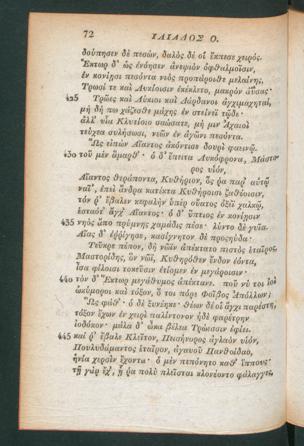 72 ΙΛΙΑΔΟΣ Ο.
δούπησεν δὲ πεσών, δαλὸς δέ οἱ ἔκπεσε χειρός.
Ἕκτωρ δ' ὡς ἐνόησεν ἀνεψιὸν ὀφθαλμοῖσιν,
ἐν κονίῃσι πεσόντα νεὸς προπάροιθε μελαίνης,
Τρωσί τε καὶ Λυκίοισιν ἐκέκλετο, μακρὸν ἀΰσας·
425 Τρῶες καὶ Λύκιοι καὶ Δάρδανοι ἀγχιμαχηταί,
μὴ δή πω χάζεσθε μάχης ἐν στείνεϊ τῷδε·
ἀλλ' υἷα Κλυτίοιο σαώσατε, μή μιν Ἀχαιοὶ
τεύχεα συλήσωσι, νεῶν ἐν ἀγῶνι πεσόντα.
Ὣς εἰπὼν Αἴαντος ἀκόντισε δουρὶ φαεινῷ.
430 τοῦ μὲν ἅμαρθ'· ὁ δ' ἔπειτα Λυκόφρονα, Μάστο-
ρος υἱόν,
Αἴαντος θεράποντα, Κυθήριον, ὅς ῥα παρ' αὐτῷ
ναῖ', ἐπεὶ ἄνδρα κατέκτα Κυθήροισι ζαθέοισιν,
τόν ῥ' ἔβαλεν κεφαλὴν ὑπὲρ οὔατος ὀξέϊ χαλκῷ,
ἑσταότ' ἄγχ' Αἴαντος· ὁ δ' ὕπτιος ἐν κονίῃσιν
435 νηὸς ἄπο πρύμνης χαμάδις πέσε· λύντο δὲ γυῖα.
Αἴας δ' ἐῤῥίγησε, κασίγνητον δὲ προσηύδα·
Τεῦκρε πέπον, δὴ νῶϊν ἀπέκτατο πιστὸς ἑταῖρος
Μαστορίδης, ὃν νῶϊ, Κυθηρόθεν ἔνδον ἐόντα,
ἶσα φίλοισι τοκεῦσιν ἐτίομεν ἐν μεγάροισιν·
440 τὸν δ' Ἕκτωρ μεγάθυμος ἀπέκτανε. ποῦ νύ τοι ἰοὶ
ὠκύμοροι καὶ τόξον, ὅ τοι πόρε Φοῖβος Ἀπόλλων;
Ὣς φάθ'· ὁ δὲ ξυνέηκε· θέων δέ οἱ ἄγχι παρέστη,
τόξον ἔχων ἐν χειρὶ παλίντονον ἠδὲ φαρέτρην
ἰοδόκον· μάλα δ' ὦκα βέλεα Τρώεσσιν ἐφίει.
445 καί ῥ' ἔβαλε Κλεῖτον, Πεισήνορος ἀγλαὸν υἱόν,
Πουλυδάμαντος ἑταῖρον, ἀγαυοῦ Πανθοΐδαο,
ἡνία χερσὶν ἔχοντα· ὁ μὲν πεπόνητο καθ' ἵππους·
τῇ γὰρ ἔχ', ᾗ ῥα πολὺ πλεῖσται κλονέοντο φάλαγγες,